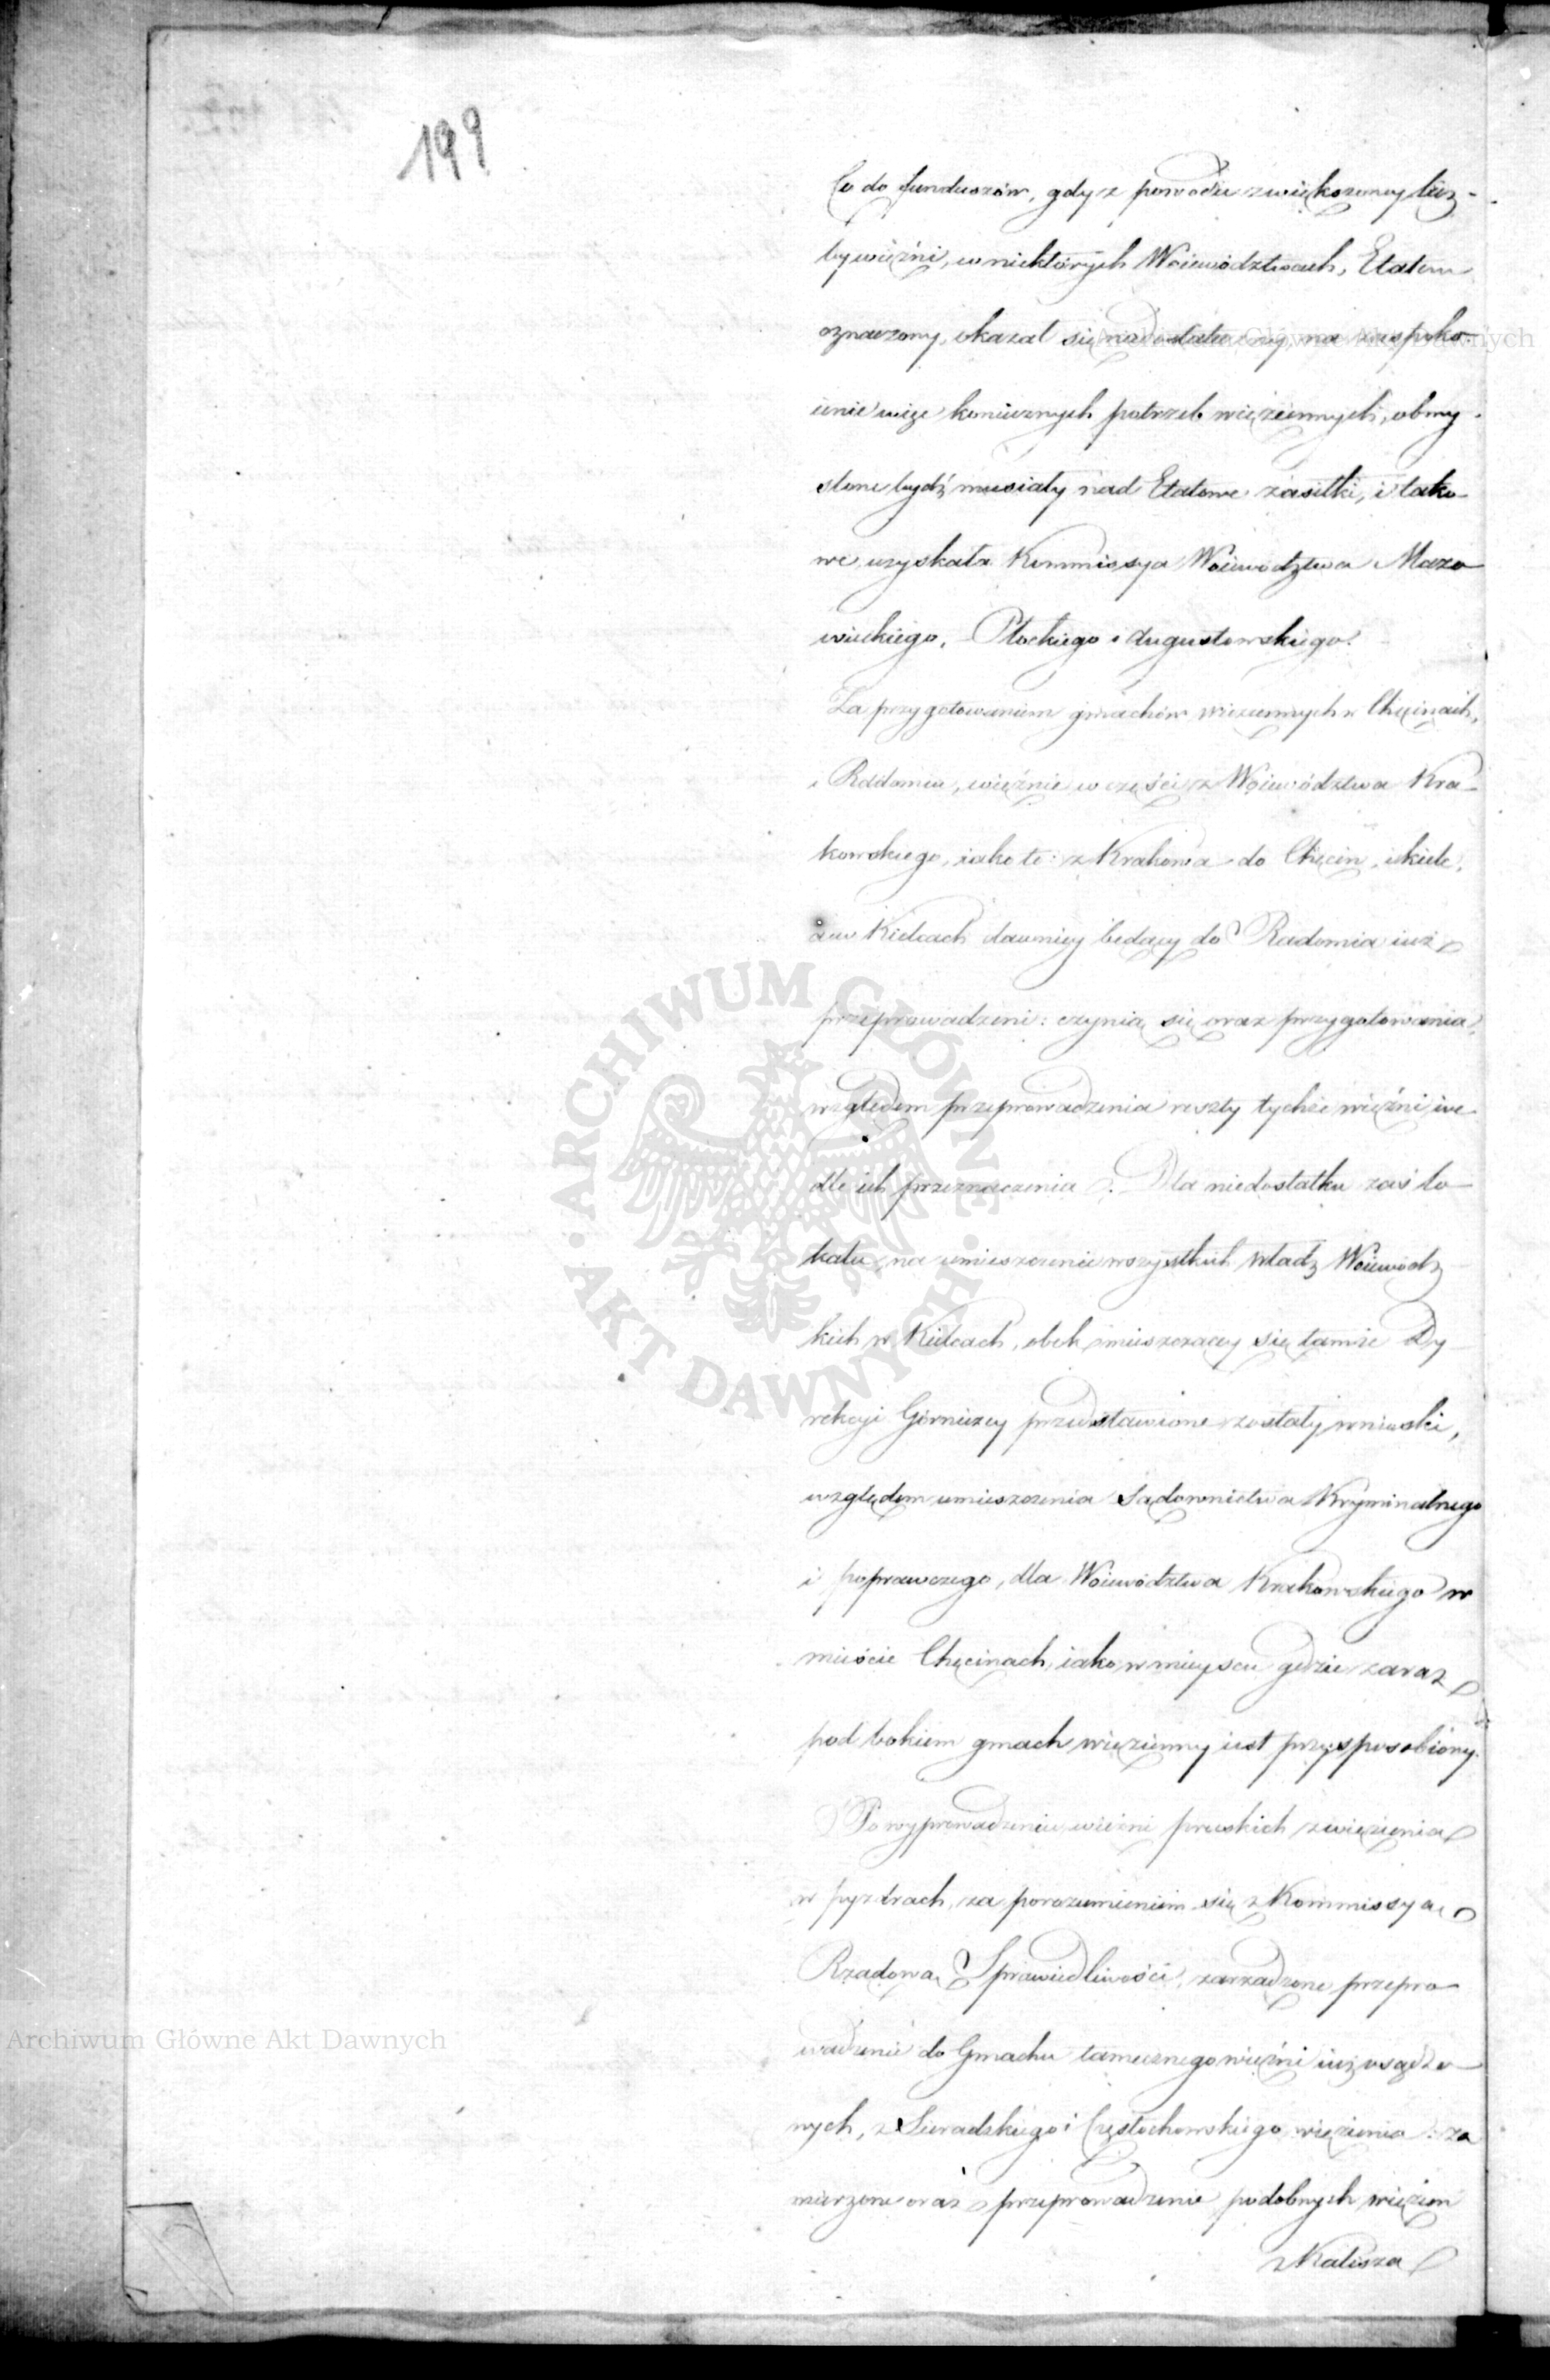 199
Co do funduszów, gdy z powodu zwiększoney licz-
by więźni, w niektórych Woiewództwach, Etatem
oznaczony, okazał się niedostateczny, na zaspoko-
ienie więc koniecznych potrzeb więziennych, obmy-
ślone bydź musiały nad Etatowe zasiłki, i tako-
we uzyskała Kommissya Woiewództwa Mazo-
wieckiego, Płockiego i Augustowskiego.
Za przygotowaniem gmachów więziennych w Chęcinach,
i Radomiu, więźnie w części z Woiewództwa Kra-
kowskiego, iako to: z Krakowa do Chęcin i Kielc,
a w Kielcach dawniey będący do Radomia iuż
przeprowadzeni: czynią się oraz przygotowania,
względem przeprowadzenia reszty tychże więźni we-
dle ich przeznaczenia. Dla niedostatku zaś lo-
kalu na umieszczenie wszystkich władz Woiewódz-
kich w Kielcach, obok mieszczącey się tamże Dy-
rekcyi Górniczey przedstawione zostały wnioski,
względem umieszczenia Sądownictwa Kryminalnego
i poprawczego, dla Woiewództwa Krakowskiego w
mieście Chęcinach, iako w mieyscu gdzie zaraz
pod bokiem gmach więzienny iest przysposobiony.
Po wyprowadzeniu więźni pruskich z więzienia
w pyzdrach, za porozumieniem się z Kommissyą
Rządową Sprawiedliwości, zarządzone przepro-
wadzenie do Gmachu tamecznego więźni iuż osądzo-
nych, z Sieradzkiego i Częstochowskiego więzienia: za-
mierzone oraz przeprowadzenie podobnych więzien
z Kalisza
Archiwum Główne Akt Dawnych
Archiwum Główne Akt Dawnych
ARCHIWUM GŁÓWNE AKT DAWNYCH